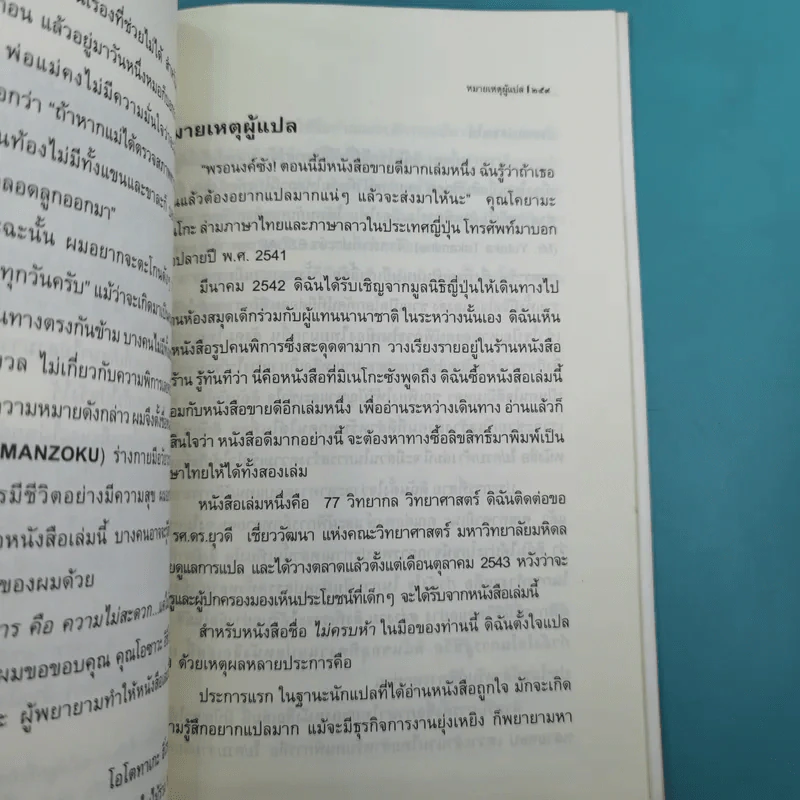 นเรื่องที่ช่วยไม่ได้
แล้วอยู่มาวันหนึ่งหมอ
พ่อแม่คงไม่มีความมั่นใจ
อกว่า "ถ้าหากแม่ได้ตรวจ
นท้องไม่มีทั้งแขนและขา
ลอดลูกออกมา"
รฉะนั้น ผมอยากจะตะโกน
ทุกวันครับ" แม้ว่าจะเกิดมา
นทางตรงกันข้าม บางคนไม่
วล ไม่เกี่ยวกับความพิการ
วามหมายดังกล่าว ผมจึงตั้งชื่อ
MANZOKU) ร่างกายมี
รมีชีวิตอย่างมีความสุข
หนังสือเล่มนี้ บางคนอาจจะ
ของผมด้วย
าร คือ ความไม่สะดวก...
ผมขอขอบคุณ คุณโอซาวะ
ะ ผู้พยายามทำให้หนังสือ
โอโตทาเกะ
หมายเหตุผู้แปล | ๒๕๙
มายเหตุผู้แปล
"พรอนงค์ซัง! ตอนนี้มีหนังสือขายดีมากเล่มหนึ่ง ฉันรู้ว่าถ้าเธอ
นแล้วต้องอยากแปลมากแน่ๆ แล้วจะส่งมาให้นะ" คุณโคยามะ
นโกะ ล่ามภาษาไทยและภาษาลาวในประเทศญี่ปุ่น โทรศัพท์มาบอก
อปลายปี พ.ศ. 2541
มีนาคม 2542 ดิฉันได้รับเชิญจากมูลนิธิญี่ปุ่นให้เดินทางไป
านห้องสมุดเด็กร่วมกับผู้แทนนานาชาติ ในระหว่างนั้นเอง ดิฉันเห็น
หนังสือรูปคนพิการซึ่งสะดุดตามาก วางเรียงรายอยู่ในร้านหนังสือ
ร้าน รู้ทันทีว่า นี่คือหนังสือที่มิเนโกะซังพูดถึง ดิฉันซื้อหนังสือเล่มนี้
อมกับหนังสือขายดีอีกเล่มหนึ่ง เพื่ออ่านระหว่างเดินทาง อ่านแล้วก็
สินใจว่า หนังสือดีมากอย่างนี้ จะต้องหาทางซื้อลิขสิทธิ์มาพิมพ์เป็น
าษาไทยให้ได้ทั้งสองเล่ม
หนังสือเล่มหนึ่งคือ 77 วิทยากล วิทยาศาสตร์ ดิฉันติดต่อขอ
รศ.ดร.ยุวดี เชี่ยววัฒนา แห่งคณะวิทยาศาสตร์ มหาวิทยาลัยมหิดล
ยดูแลการแปล และได้วางตลาดแล้วตั้งแต่เดือนตุลาคม 2543 หวังว่าจะ
รูและผู้ปกครองมองเห็นประโยชน์ที่เด็กๆ จะได้รับจากหนังสือเล่มนี้
สำหรับหนังสือชื่อ ไม่ครบห้า ในมือของท่านนี้ ดิฉันตั้งใจแปล
ด้วยเหตุผลหลายประการคือ
ประการแรก ในฐานะนักแปลที่ได้อ่านหนังสือถูกใจ มักจะเกิด
ามรู้สึกอยากแปลมาก แม้จะมีธุรกิจการงานยุ่งเหยิง ก็พยายามหา